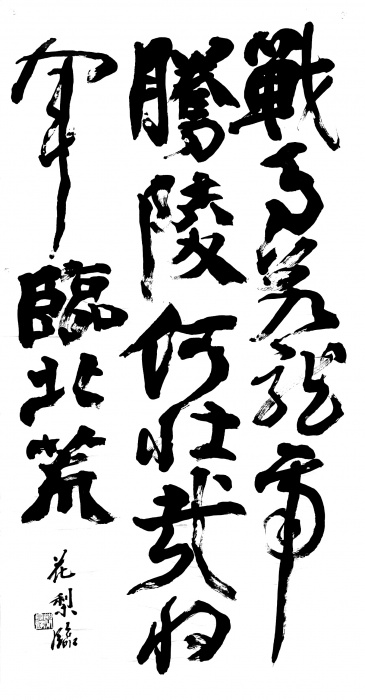 戰馬若龍虎
騰陵何壯哉将
軍臨北荒
花梨臨